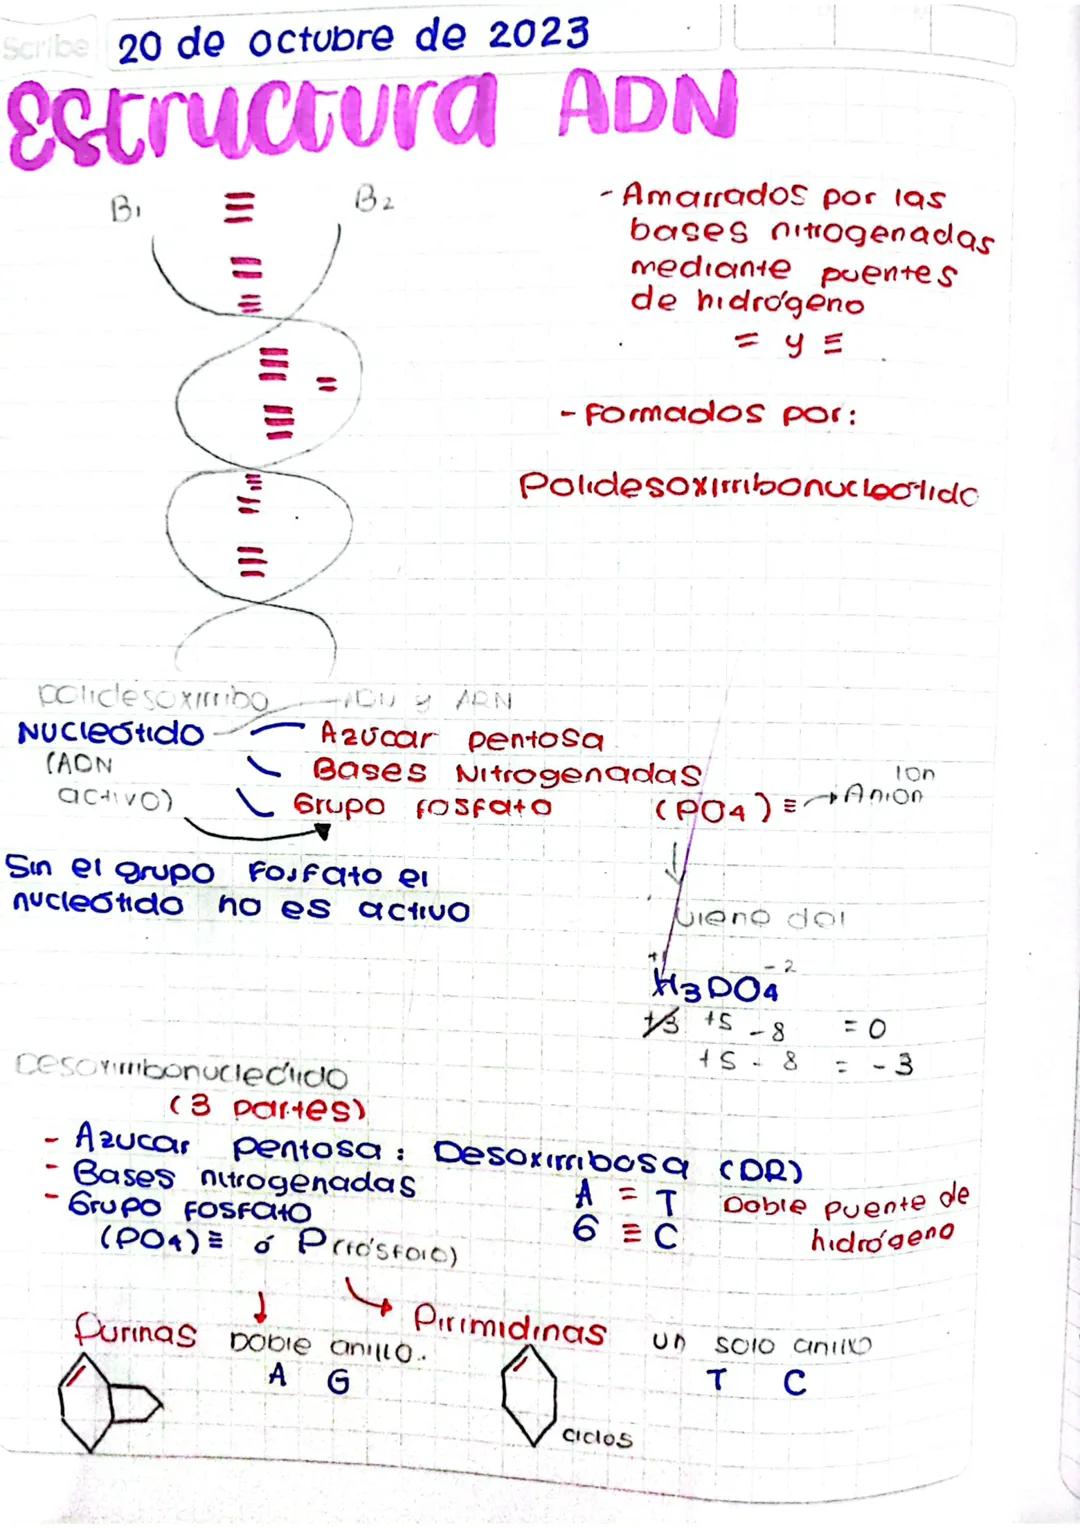 Scribe
20 de octubre de 2023
Estructura ADN
B1 B2
- Amarrados por las
bases nitrogenadas
mediante puentes
de hidrógeno
= y ≡
- Formados por:
Polidesoxirribonucleótido
polidesoxirribo ADN y ARN
Nucleótido Azúcar pentosa
(ADN
activo)
Bases Nitrogenadas
Grupo fosfato (PO4)≡ → Anion
Ion
Sin el grupo Fosfato el
nucleótido no es activo
viene del
+1 -2
H3PO4
+3 +5 -8 = 0
+5 - 8 = -3
Desoxirribonucleótido
(3 partes)
- Azucar pentosa: Desoxirribosa (DR)
- Bases nitrogenadas
A = T Doble puente de
hidrógeno
G ≡ C
- Grupo fosfato
(PO4)≡ ó P (fósforo)
Purinas Doble anillo..
A G
Pirimidinas un solo anillo
T C
ciclos